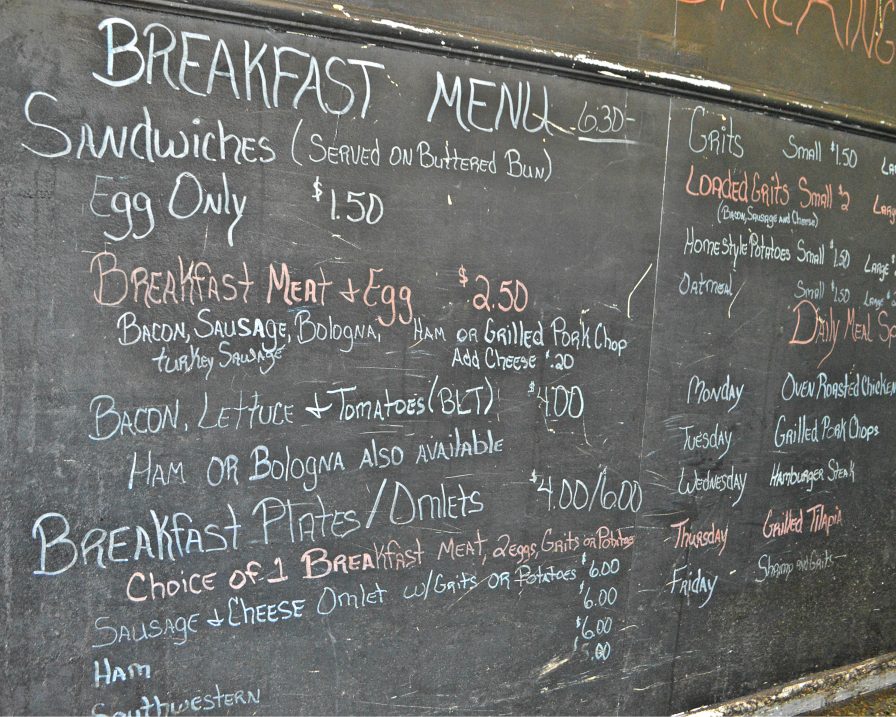 BREAKFAST MENU 6:30-
SANDWICHES (SERVED ON BUTTERED BUN)
Egg ONLY $1.50
BREAKFAST MEAT & Egg $2.50
BACON, SAUSAGE, BOLOGNA, HAM OR GRILLED PORK CHOP
TURKEY SAUSAGE Add CHEESE $.20
BACON, LETTUCE & TOMATOES (BLT) $4.00
HAM OR BOLOGNA ALSO AVAILABLE
BREAKFAST PLATES/OMLETS $4.00/6.00
CHOICE OF 1 BREAKFAST MEAT, 2 EGGS, GRITS OR POTATOES
SAUSAGE & CHEESE OMLET W/GRITS OR POTATOES $6.00
$6.00
HAM $6.00
SOUTHWESTERN $5.00
GRITS Small $1.50
LOADED GRITS Small $2
(BACON, SAUSAGE AND CHEESE)
HOMESTYLE POTATOES Small $1.50 LARGE $
OATMEAL Small $1.50 LARGE $
DAILY MEAL
MONDAY OVEN ROASTED CHICKEN
TUESDAY GRILLED PORK CHOPS
WEDNESDAY HAMBURGER STEAK
THURSDAY GRILLED TILAPIA
FRIDAY SHRIMP AND GRITS